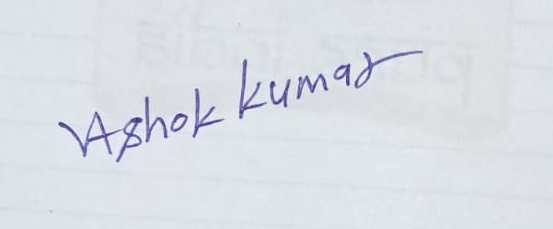 Ashok kumar